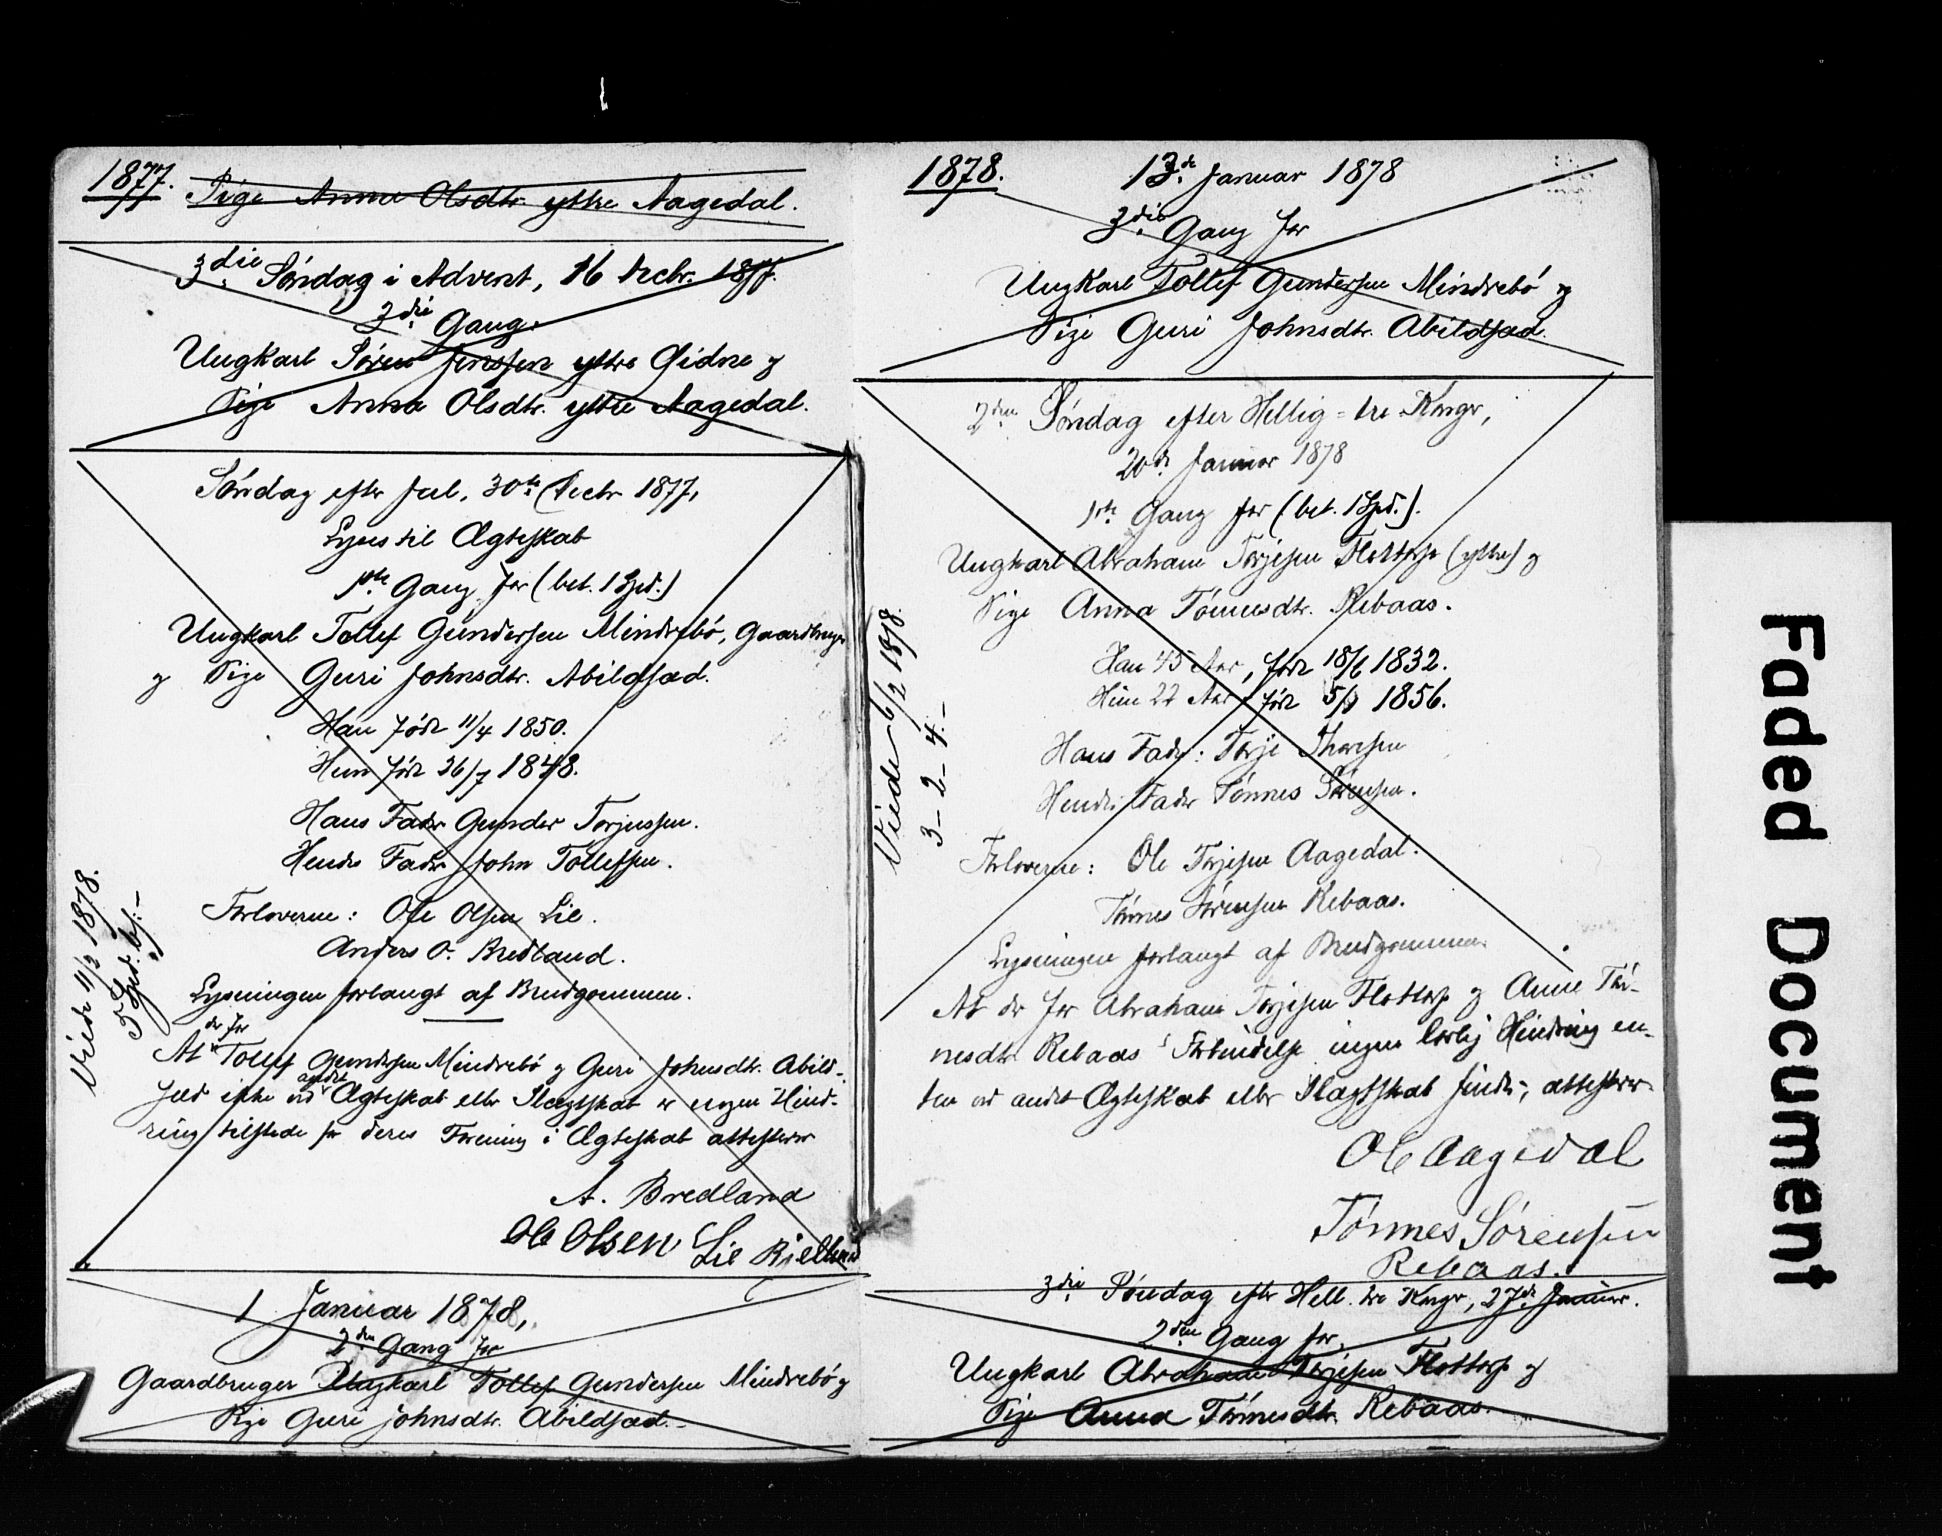 1877.
Pige Anna Olsdtr. ytre Aagedal.
3die Søndag i Advent, 16 Decbr. 1877.
3die Gang.
Ungkarl Søren Jenssen ytre Eidne og
Pige Anna Olsdtr. ytre Aagedal.
Søndag efter Jul, 30te Decbr 1877,
Lyses til Ægteskab
1ste Gang for (bet. 1 Spd.)
Ungkarl Tollef Gundersen Mindrebø, Gaardbruger
og Pige Guri Johnsdtr. Abildsad.
Han født 11/4 1850.
Hun født 26/7 1848.
Hans Fader Gunder Torjussen.
Hendes Fader John Tollefsen.
Forloverne: Ole Olsen Lie.
Anders O. Bredland.
Lysningen forlangt af Brudgommen.
Viede 11/2 1878.
5 Spd. bt:-
der for
At Tollef Gundersen Mindrebø og Guri Johnsdtr. Abild-
sad ikke ved andet Ægteskab eller Slægtskab er nogen Hind-
ring tilstede for deres Forening i Ægteskab attesterer
A. Bredland
Ole Olsen Lie
1 Januar 1878,
2den Gang for
Gaardbruger Ungkarl Tollef Gundersen Mindrebø og
Pige Guri Johnsdtr. Abildsad.
1878.
13de Januar 1878
3die Gang for
Ungkarl Tollef Gundersen Mindrebø og
Pige Guri Johnsdtr. Abildsad.
2den Søndag efter Hellig=tre Kngr,
20de Januar 1878
1ste Gang for (bet. 1 Spd.).
Ungkarl Abraham Torjesen Flottorp (ytre) og
Pige Anna Tønnesdtr. Rebaas.
Han 45 Aar, født 18/6 1832.
Hun 22 Aar, født 5/9 1856.
Hans Fader: Torje
Hendes Fader Tønnes Sørensen.
Forloverne: Ole Torjesen Aagedal.
Tønnes Sørensen Rebaas.
Lysningen forlangt af Brudgommen
Viede 6/2 1878.
3-2-4.-
At der for Abraham Torjesen Flottorp og Anne Tøn-
nesdtr Rebaas's Forbindelse ingen lovlig Hindring en-
ten ved andet Ægteskab eller Slægtskab findes, attesterer
Ole Aagedal
Tønnes Sørensen
Rebaas.
3die Søndag efter Hell. tre Kngr, 27de Januar.
2den Gang for,
Ungkarl Abraham Torjesen Flottorp og
Pige Anna Tønnesdtr. Rebaas.
Faded Document